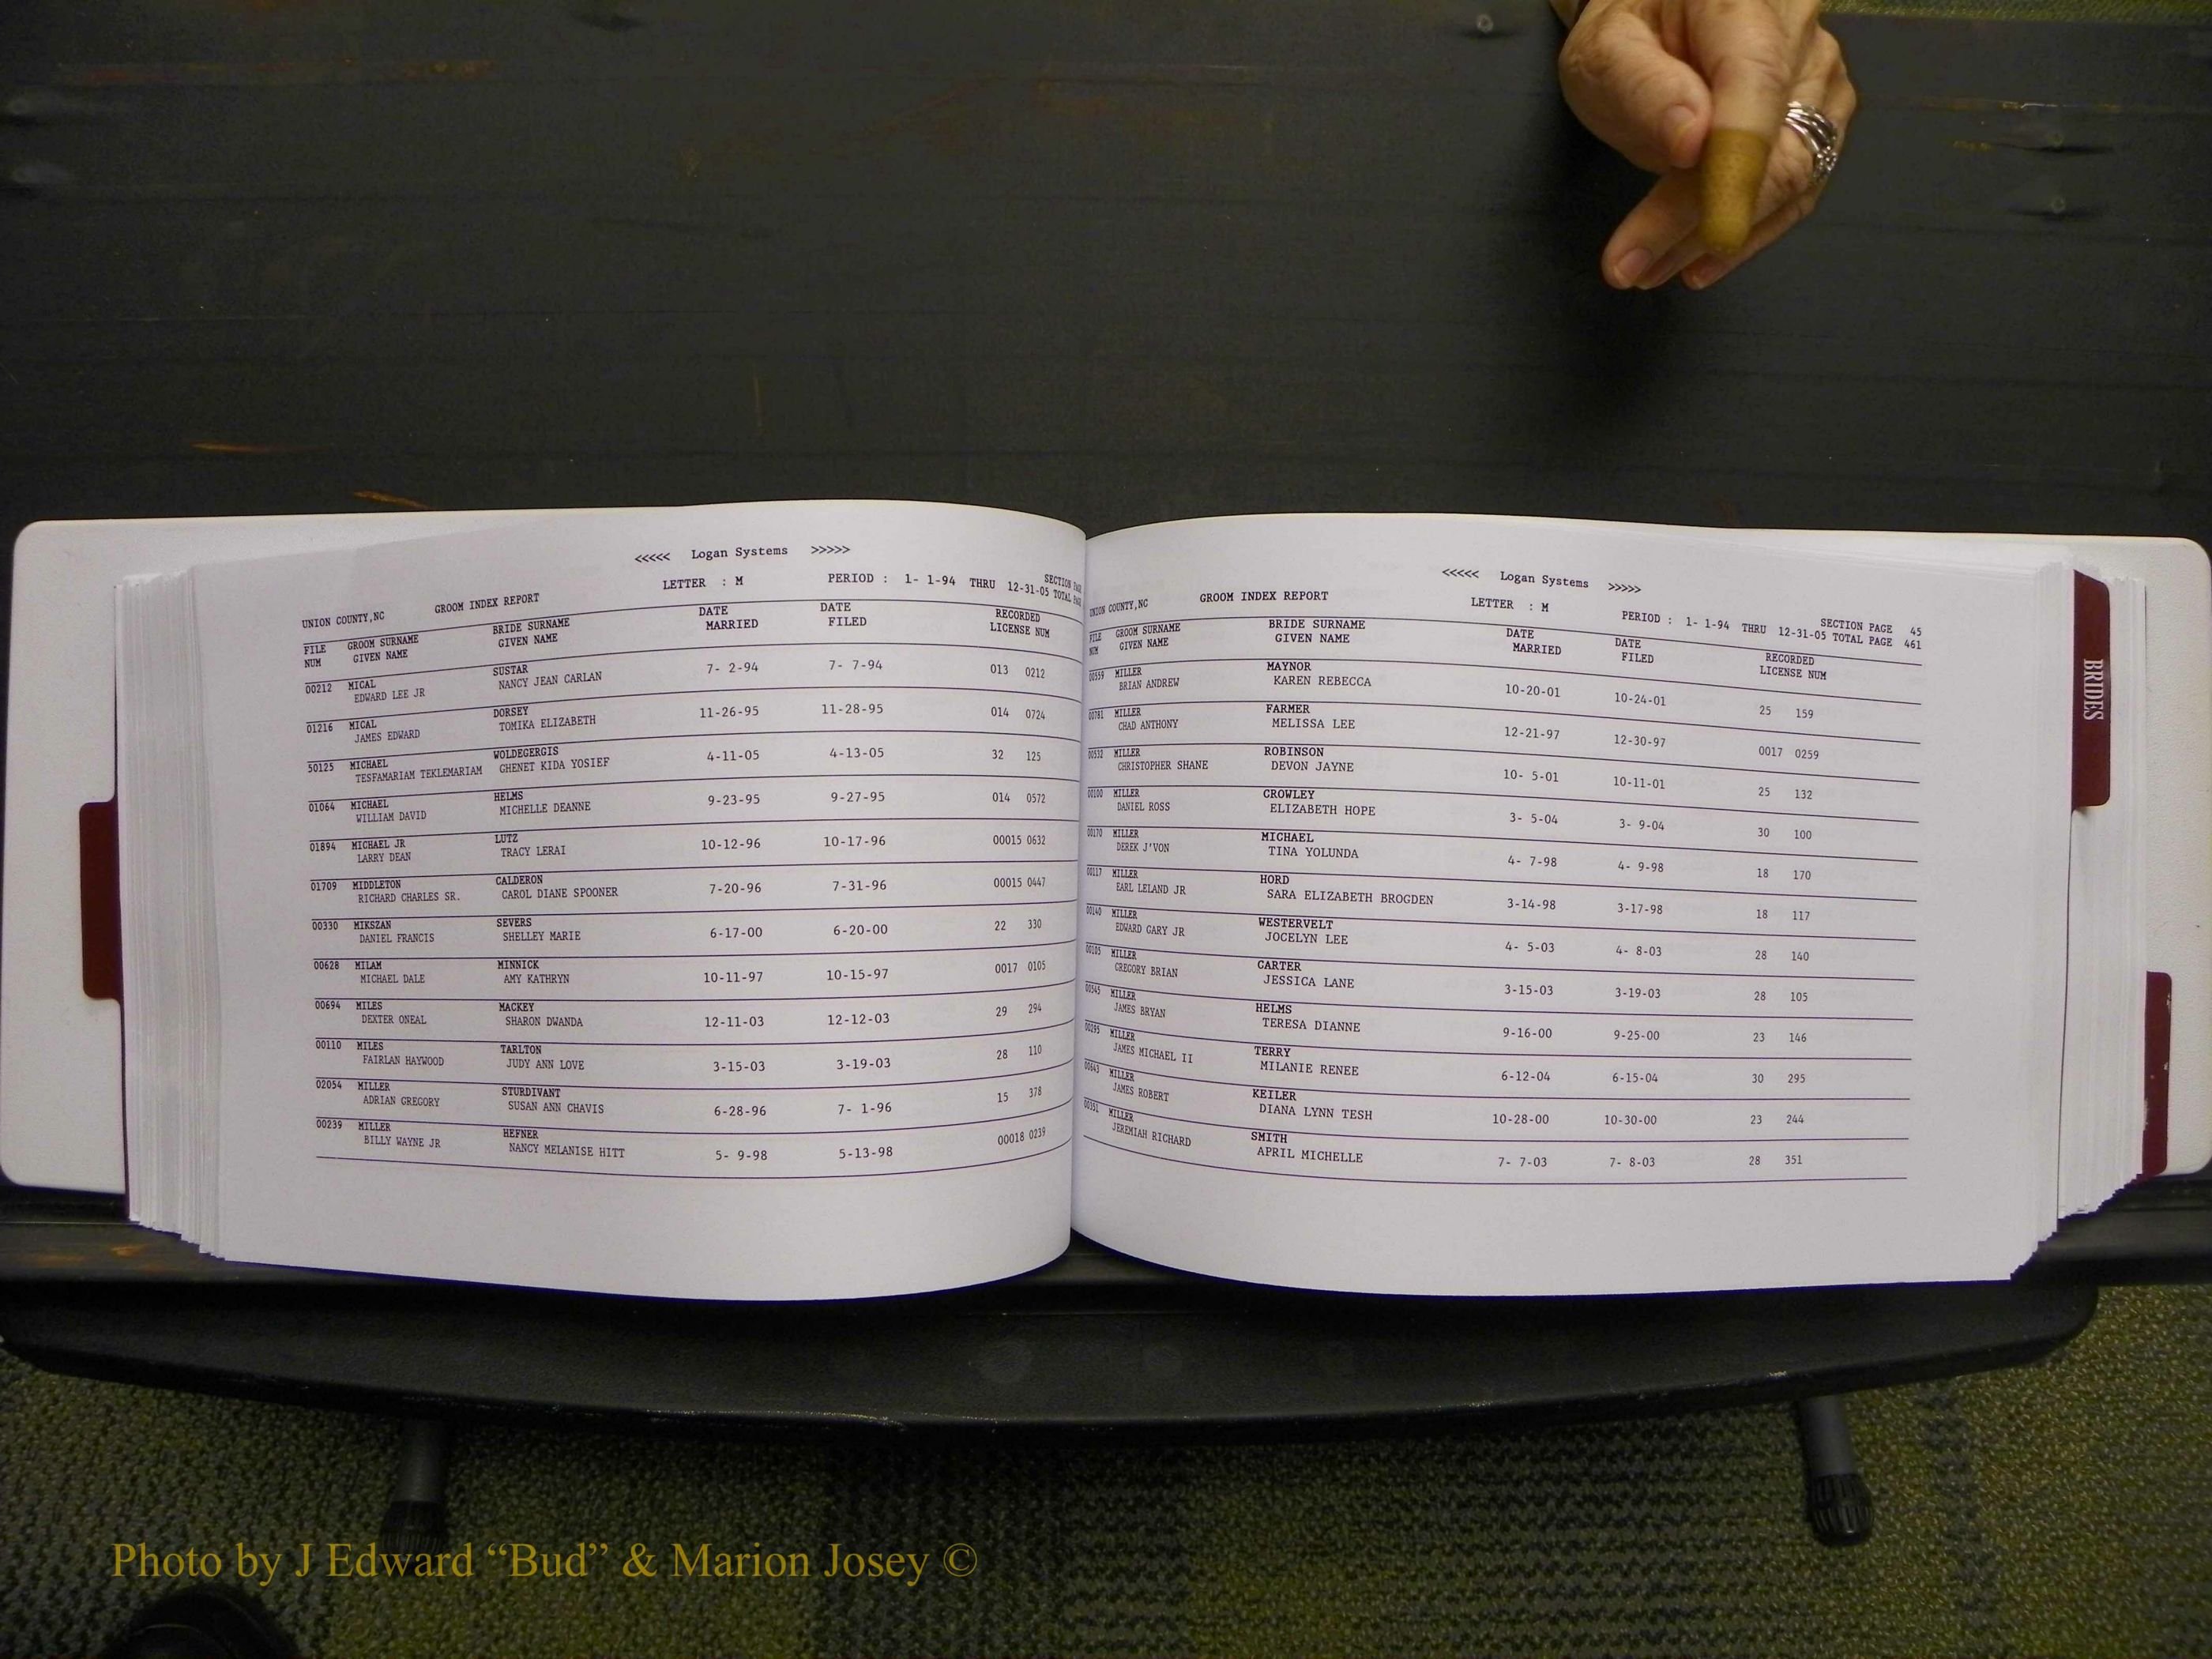 <<<<< Logan Systems >>>>>
UNION COUNTY,NC GROOM INDEX REPORT LETTER : M PERIOD : 1- 1-94 THRU 12-31-05
SECTION
TOTAL
FILE GROOM SURNAME BRIDE SURNAME DATE DATE RECORDED
NUM GIVEN NAME GIVEN NAME MARRIED FILED LICENSE NUM
00212 MICAL SUSTAR 7- 2-94 7- 7-94 013 0212
EDWARD LEE JR NANCY JEAN CARLAN
01216 MICAL DORSEY 11-26-95 11-28-95 014 0724
JAMES EDWARD TOMIKA ELIZABETH
50125 MICHAEL WOLDEGERGIS 4-11-05 4-13-05 32 125
TESFAMARIAM TEKLEMARIAM GHENET KIDA YOSIEF
01064 MICHAEL HELMS 9-23-95 9-27-95 014 0572
WILLIAM DAVID MICHELLE DEANNE
01894 MICHAEL JR LUTZ 10-12-96 10-17-96 00015 0632
LARRY DEAN TRACY LERAI
01709 MIDDLETON CALDERON 7-20-96 7-31-96 00015 0447
RICHARD CHARLES SR. CAROL DIANE SPOONER
00330 MIKSZAN SEVERS 6-17-00 6-20-00 22 330
DANIEL FRANCIS SHELLEY MARIE
00628 MILAM MINNICK 10-11-97 10-15-97 0017 0105
MICHAEL DALE AMY KATHRYN
00694 MILES MACKEY 12-11-03 12-12-03 29 294
DEXTER ONEAL SHARON DWANDA
00110 MILES TARLTON 3-15-03 3-19-03 28 110
FAIRLAN HAYWOOD JUDY ANN LOVE
02054 MILLER STURDIVANT 6-28-96 7- 1-96 15 378
ADRIAN GREGORY SUSAN ANN CHAVIS
00239 MILLER HEFNER 5- 9-98 5-13-98 00018 0239
BILLY WAYNE JR NANCY MELANISE HITT
<<<<< Logan Systems >>>>>
UNION COUNTY,NC GROOM INDEX REPORT LETTER : M PERIOD : 1- 1-94 THRU 12-31-05
SECTION PAGE 45
TOTAL PAGE 461
FILE GROOM SURNAME BRIDE SURNAME DATE DATE RECORDED
NUM GIVEN NAME GIVEN NAME MARRIED FILED LICENSE NUM
00559 MILLER MAYNOR 10-20-01 10-24-01 25 159
BRIAN ANDREW KAREN REBECCA
00781 MILLER FARMER 12-21-97 12-30-97 0017 0259
CHAD ANTHONY MELISSA LEE
00532 MILLER ROBINSON 10- 5-01 10-11-01 25 132
CHRISTOPHER SHANE DEVON JAYNE
00100 MILLER CROWLEY 3- 5-04 3- 9-04 30 100
DANIEL ROSS ELIZABETH HOPE
00170 MILLER MICHAEL 4- 7-98 4- 9-98 18 170
DEREK J'VON TINA YOLUNDA
00117 MILLER HORD 3-14-98 3-17-98 18 117
EARL LELAND JR SARA ELIZABETH BROGDEN
00140 MILLER WESTERVELT 4- 5-03 4- 8-03 28 140
EDWARD GARY JR JOCELYN LEE
00105 MILLER CARTER 3-15-03 3-19-03 28 105
GREGORY BRIAN JESSICA LANE
00545 MILLER HELMS 9-16-00 9-25-00 23 146
JAMES BRYAN TERESA DIANNE
00295 MILLER TERRY 6-12-04 6-15-04 30 295
JAMES MICHAEL II MILANIE RENEE
00643 MILLER KEILER 10-28-00 10-30-00 23 244
JAMES ROBERT DIANA LYNN TESH
00351 MILLER SMITH 7- 7-03 7- 8-03 28 351
JEREMIAH RICHARD APRIL MICHELLE
BRIDES
Photo by J Edward “Bud” & Marion Josey ©